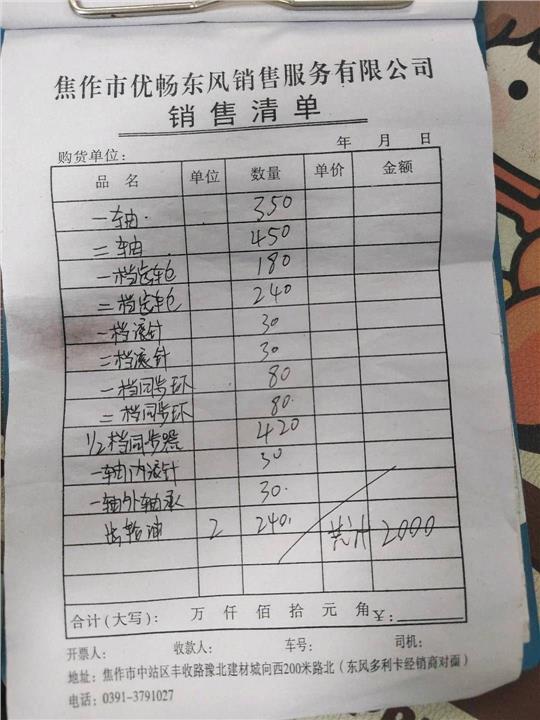 焦作市优畅东风销售服务有限公司
销售清单
年 月 日
购货单位：
品名 单位 数量 单价 金额
一轴. 350
二轴 450
一档齿轮 180
二档齿轮 240
一档滚针 30
二档滚针 30
一档同步环 80
二档同步环 80.
1/2档同步器 420
一轴内滚针 30
一轴外轴承 30.
齿轮油 2 240. 共计 2000
合计(大写)： 万 仟 佰 拾 元 角 ¥：
开票人： 收款人： 车号： 司机：
地址：焦作市中站区丰收路豫北建材城向西200米路北（东风多利卡经销商对面）
电话：0391-3791027